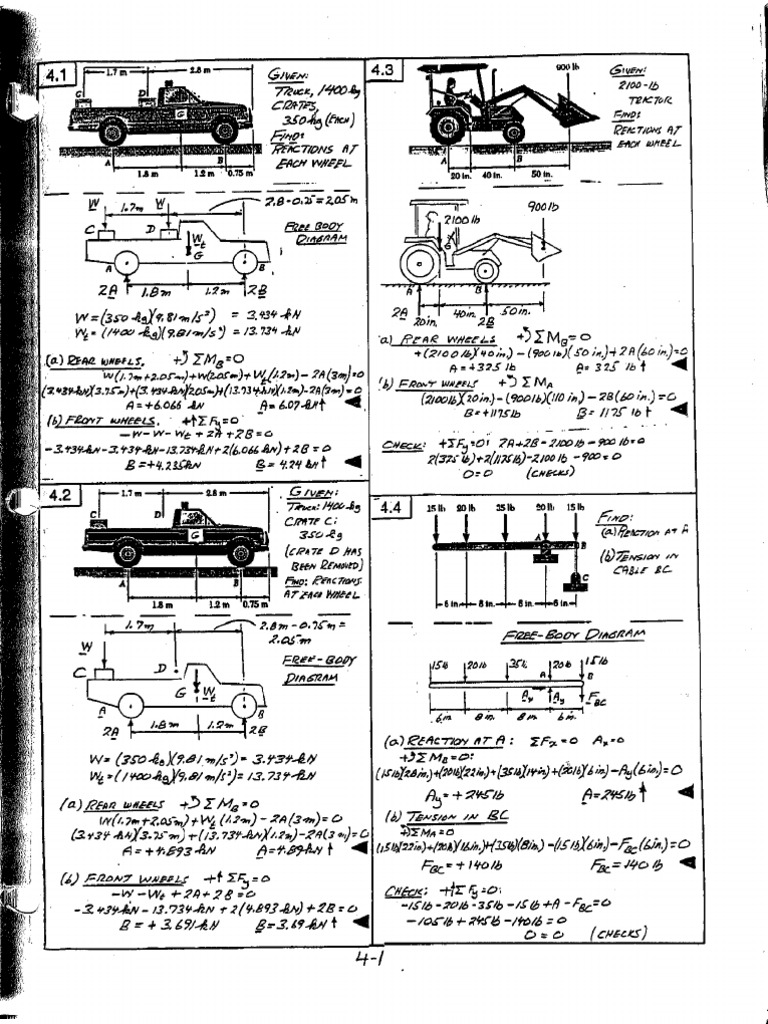 4.1
1.7 m
2.8 m
C
D
G
A
B
1.8 m
1.2 m
0.75 m
GIVEN:
TRUCK, 1400 kg
CRATES,
350 kg (EACH)
FIND:
REACTIONS AT
EACH WHEEL
W
W
1.7m
2.8-0.75=2.05m
C
D
Wt
G
FREE BODY
DIAGRAM
A
B
2A
1.8m
1.2m
2B
W = (350 kg)(9.81 m/s²) = 3.434 kN
Wt = (1400 kg)(9.81 m/s²) = 13.734 kN
(a) REAR WHEELS. +↺ΣMB=0
W(1.7m+2.05m)+W(2.05m)+Wt(1.2m)-2A(3m)=0
(3.434 kN)(3.75m)+(3.434 kN)(2.05m)+(13.734 kN)(1.2m)-2A(3m)=0
A=+6.066 kN A=6.07 kN↑
(b) FRONT WHEELS. +↑ΣFy=0
-W-W-Wt+2A+2B=0
-3.434 kN-3.434 kN-13.734 kN+2(6.066 kN)+2B=0
B=+4.235 kN B=4.24 kN↑
4.2
1.7 m
2.8 m
C
D
G
A
B
1.8 m
1.2 m
0.75 m
GIVEN:
TRUCK: 1400 kg
CRATE C:
350 kg
(CRATE D HAS
BEEN REMOVED)
FIND: REACTIONS
AT EACH WHEEL
W
1.7m
2.8m-0.75m=
2.05m
C
D
G
Wt
FREE-BODY
DIAGRAM
A
B
2A
1.8m
1.2m
2B
W = (350 kg)(9.81 m/s²) = 3.434 kN
Wt = (1400 kg)(9.81 m/s²) = 13.734 kN
(a) REAR WHEELS +↺ΣMB=0
W(1.7m+2.05m)+Wt(1.2m)-2A(3m)=0
(3.434 kN)(3.75m)+(13.734 kN)(1.2m)-2A(3m)=0
A=+4.893 kN A=4.89 kN↑
(b) FRONT WHEELS +↑ΣFy=0
-W-Wt+2A+2B=0
-3.434 kN-13.734 kN+2(4.893 kN)+2B=0
B=+3.691 kN B=3.69 kN↑
4.3
900 lb
G
A
B
20 in.
40 in.
50 in.
GIVEN:
2100-lb
TRACTOR
FIND:
REACTIONS AT
EACH WHEEL
2100 lb
900 lb
G
A
B
2A
20in.
40in.
2B
50in.
(a) REAR WHEELS +↺ΣMB=0
+(2100 lb)(40 in.)-(900 lb)(50 in.)+2A(60 in.)=0
A=+325 lb A=325 lb↑
(b) FRONT WHEELS +↺ΣMA
(2100 lb)(20in.)-(900 lb)(110 in.)-2B(60 in.)=0
B=+1175 lb B=1175 lb↑
CHECK: +↑ΣFy=0: 2A+2B-2100 lb-900 lb=0
2(325 lb)+2(1175 lb)-2100 lb-900=0
0=0 (CHECKS)
4.4
15 lb 20 lb 35 lb 20 lb 15 lb
A
B
C
6 in. 8 in. 8 in. 6 in.
FIND:
(a) REACTION AT A
(b) TENSION IN
CABLE BC
FREE-BODY DIAGRAM
15lb 20lb 35lb 20lb 15lb
A
B
Ax
Ay
FBC
6in. 8in. 8in. 6in.
(a) REACTION AT A: ΣFx=0 Ax=0
+↺ΣMB=0:
(15lb)(28in.)+(20lb)(22in.)+(35lb)(14in.)+(20lb)(6in.)-Ay(6in.)=0
Ay=+245lb A=245lb↑
(b) TENSION IN BC
+↺ΣMA=0
(15lb)(22in.)+(20lb)(16in.)+(35lb)(8in.)-(15lb)(6in.)-FBC(6in.)=0
FBC=+140lb FBC=140 lb
CHECK: +↑ΣFy=0:
-15lb-20lb-35lb-15lb+A-FBC=0
-105lb+245lb-140lb=0
0=0 (CHECKS)
4-1